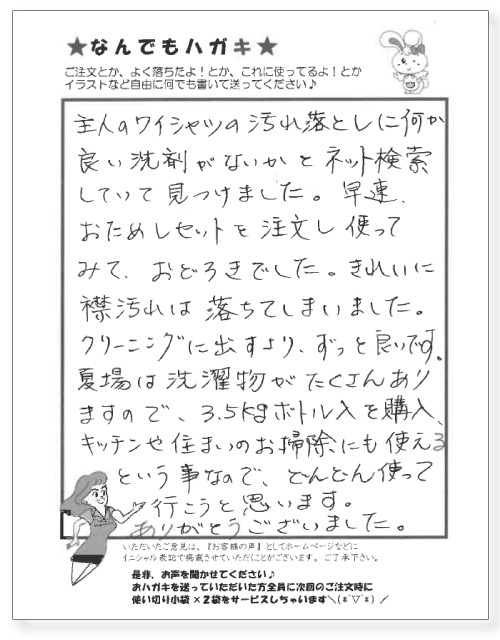 ★なんでもハガキ★
ご注文とか、よく落ちたよ！とか、これに使ってるよ！とか
イラストなど自由に何でも書いて送ってください♪
主人のワイシャツの汚れ落としに何か
良い洗剤がないかとネット検索
していて見つけました。早速、
おためしセットを注文し使って
みて、おどろきでした。きれいに
襟汚れは落ちてしまいました。
クリーニングに出すより、ずっと良いです。
夏場は洗濯物がたくさんあり
ますので、3.5kgボトル入を購入、
キッチンや住まいのお掃除にも使える
という事なので、どんどん使って
行こうと思います。
ありがとうございました。
いただいたご意見は、『お客様の声』としてホームページなどに
イニシャル表記で掲載させていただくことがございます。ご了承下さい。
是非、お声を聞かせてください♪
おハガキを送っていただいた方全員に次回のご注文時に
使い切り小袋×2袋をサービスしちゃいます＼(*´▽`*)／